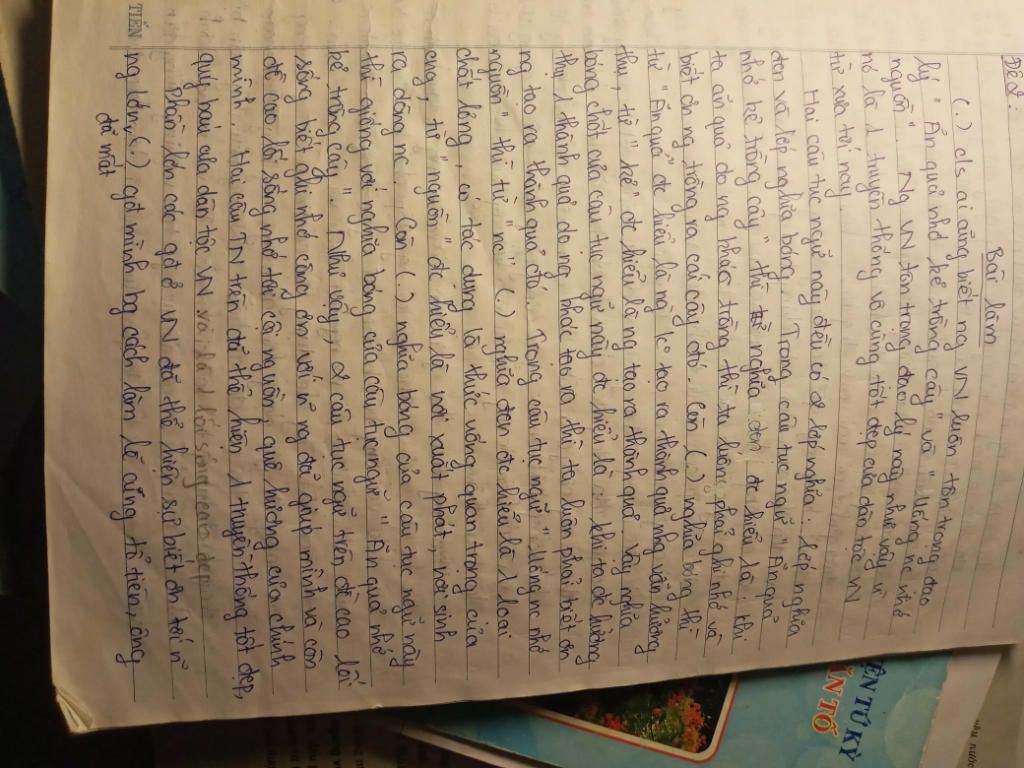 Đề 2:
Bài làm
(.) c/s ai cũng biết ng VN luôn tôn trọng đạo
lý " Ăn quả nhớ kẻ trồng cây " và " Uống nc nhớ
nguồn ". Ng VN tôn trọng đạo lý này như vậy vì
nó là 1 truyền thống vô cùng tốt đẹp của dân tộc VN
từ xưa tới nay.
Hai câu tục ngữ này đều có 2 lớp nghĩa : lớp nghĩa
đen và lớp nghĩa bóng. Trong câu tục ngữ " Ăn quả
nhớ kẻ trồng cây " thì nghĩa đen đc hiểu là : khi
ta ăn quả do ng khác trồng thì ta luôn phải ghi nhớ và
biết ơn ng trồng ra cái cây đó. Còn (.) nghĩa bóng thì
từ " Ăn quả " đc hiểu là ng ko tạo ra thành quả nhg vẫn hưởng
thụ, từ " kẻ " đc hiểu là ng tạo ra thành quả. Vậy nghĩa
bóng chốt của câu tục ngữ này đc hiểu là : khi ta đc hưởng
thụ 1 thành quả do ng khác tạo ra thì ta luôn phải biết ơn
ng tạo ra thành quả đó. Trong câu tục ngữ " Uống nc nhớ
nguồn " thì từ " nc " (.) nghĩa đen đc hiểu là 1 loại
chất lỏng, có tác dụng là thức uống quan trọng của
, từ " nguồn " đc hiểu là nơi xuất phát, nơi sinh
ra dòng nc. Còn (.) nghĩa bóng của câu tục ngữ này
thì giống với nghĩa bóng của câu tục ngữ " Ăn quả nhớ
kẻ trồng cây ". Như vậy, 2 câu tục ngữ trên đề cao lối
sống biết ghi nhớ công ơn với ng đã giúp mình và còn
đề cao lối sống nhớ tới cội nguồn, quê hương của chính
mình. Hai câu TN trên đã thể hiện 1 truyền thống tốt đẹp,
quý báu của dân tộc VN và là 1 lối sống cao đẹp.
Phần lớn các gđ ở VN đã thể hiện sự biết ơn tới
ng lớn (.) gđ mình bg cách làm lễ cúng tổ tiên, ông
đã mất
TIẾN
ỆN TỨ KỲ
ẤN TỐ